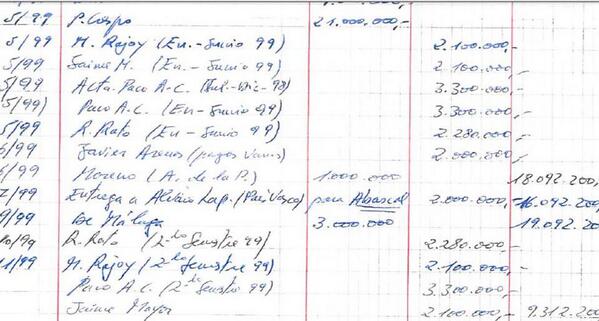 5/99 P. Crespo 21.000.000,-
5/99 M. Rajoy (En.- Junio 99) 2.100.000,-
5/99 Jaime M. (En.- Junio 99) 2.100.000,-
5/99 Acta. Paco A.C. (Jul.-Dic-98) 3.300.000,-
5/99) Paco A.C. (En- Junio 99) 3.300.000,-
5/99 R. Rato (En- Junio 99) 2.280.000,-
6/99 Javier Arenas (pagos varios) 2.000.000,-
6/99 Moreno (A. de la P.) 1.000.000 18.092.200,
7/99 Entrega a Alvaro Lap. (País Vasco) para Abascal 2.000.000,- 16.092.200
9/99 De Málaga 3.000.000 19.092.20
10/99 R. Rato (2º Semestre 99) 2.280.000,-
11/99 M. Rajoy (2º Semestre 99) 2.100.000,-
Paco A.C. (2º Semestre 99) 3.300.000,-
Jaime Mayor 2.100.000,- 9.312.200